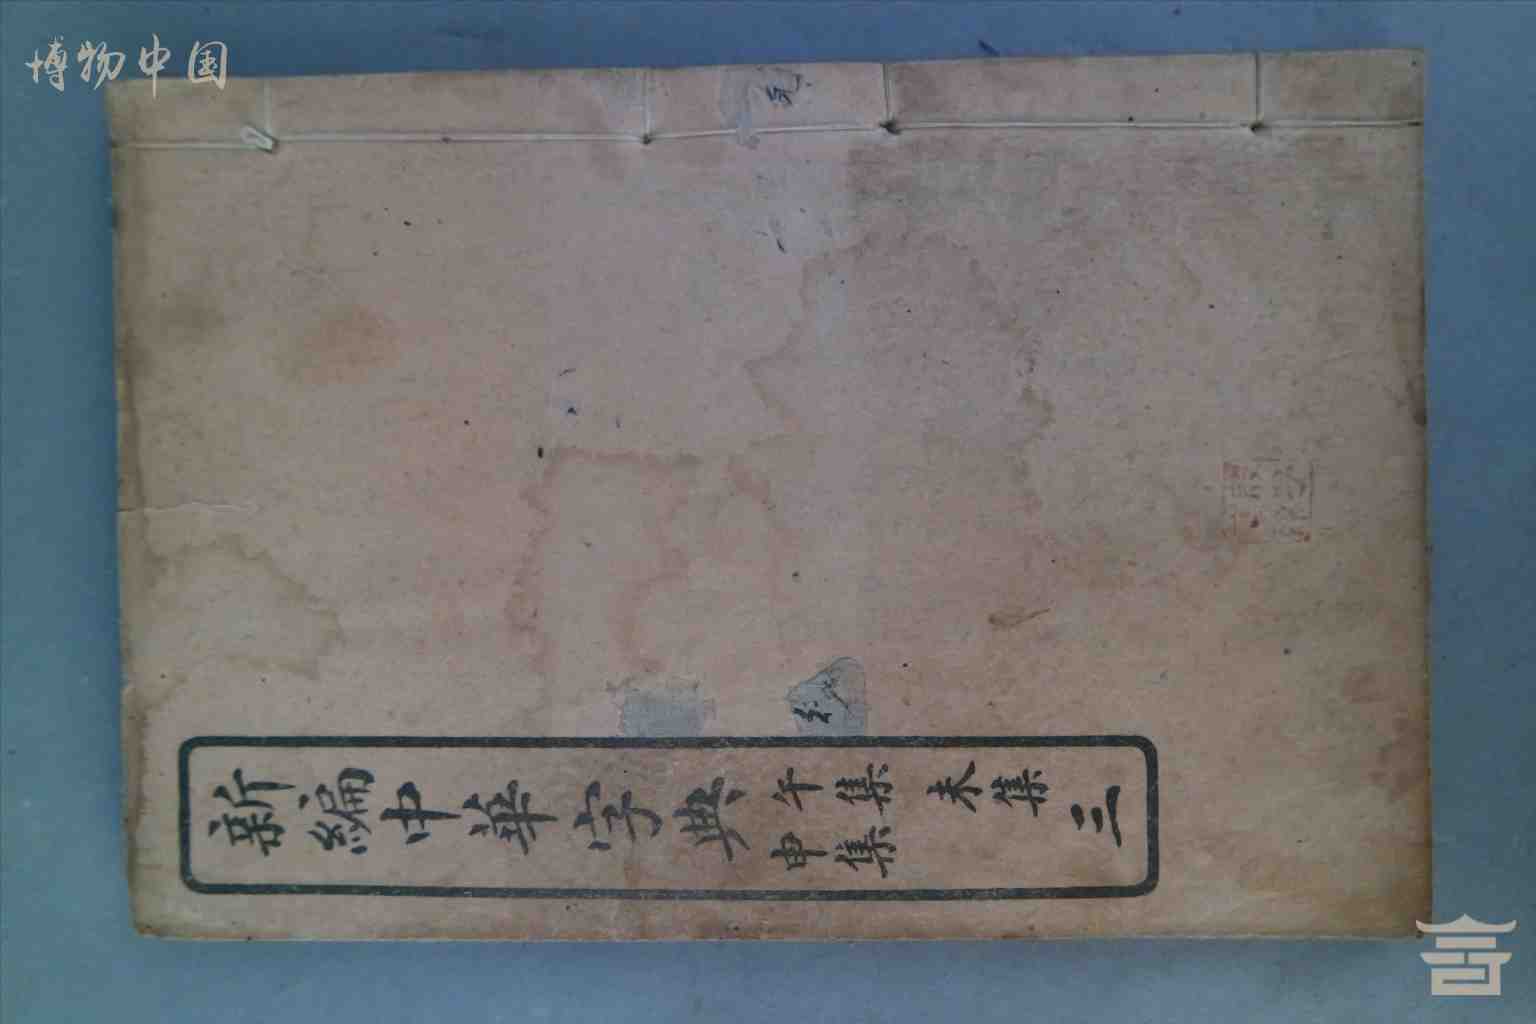 博物中国
新編中華字典 午集 未集 申集 三